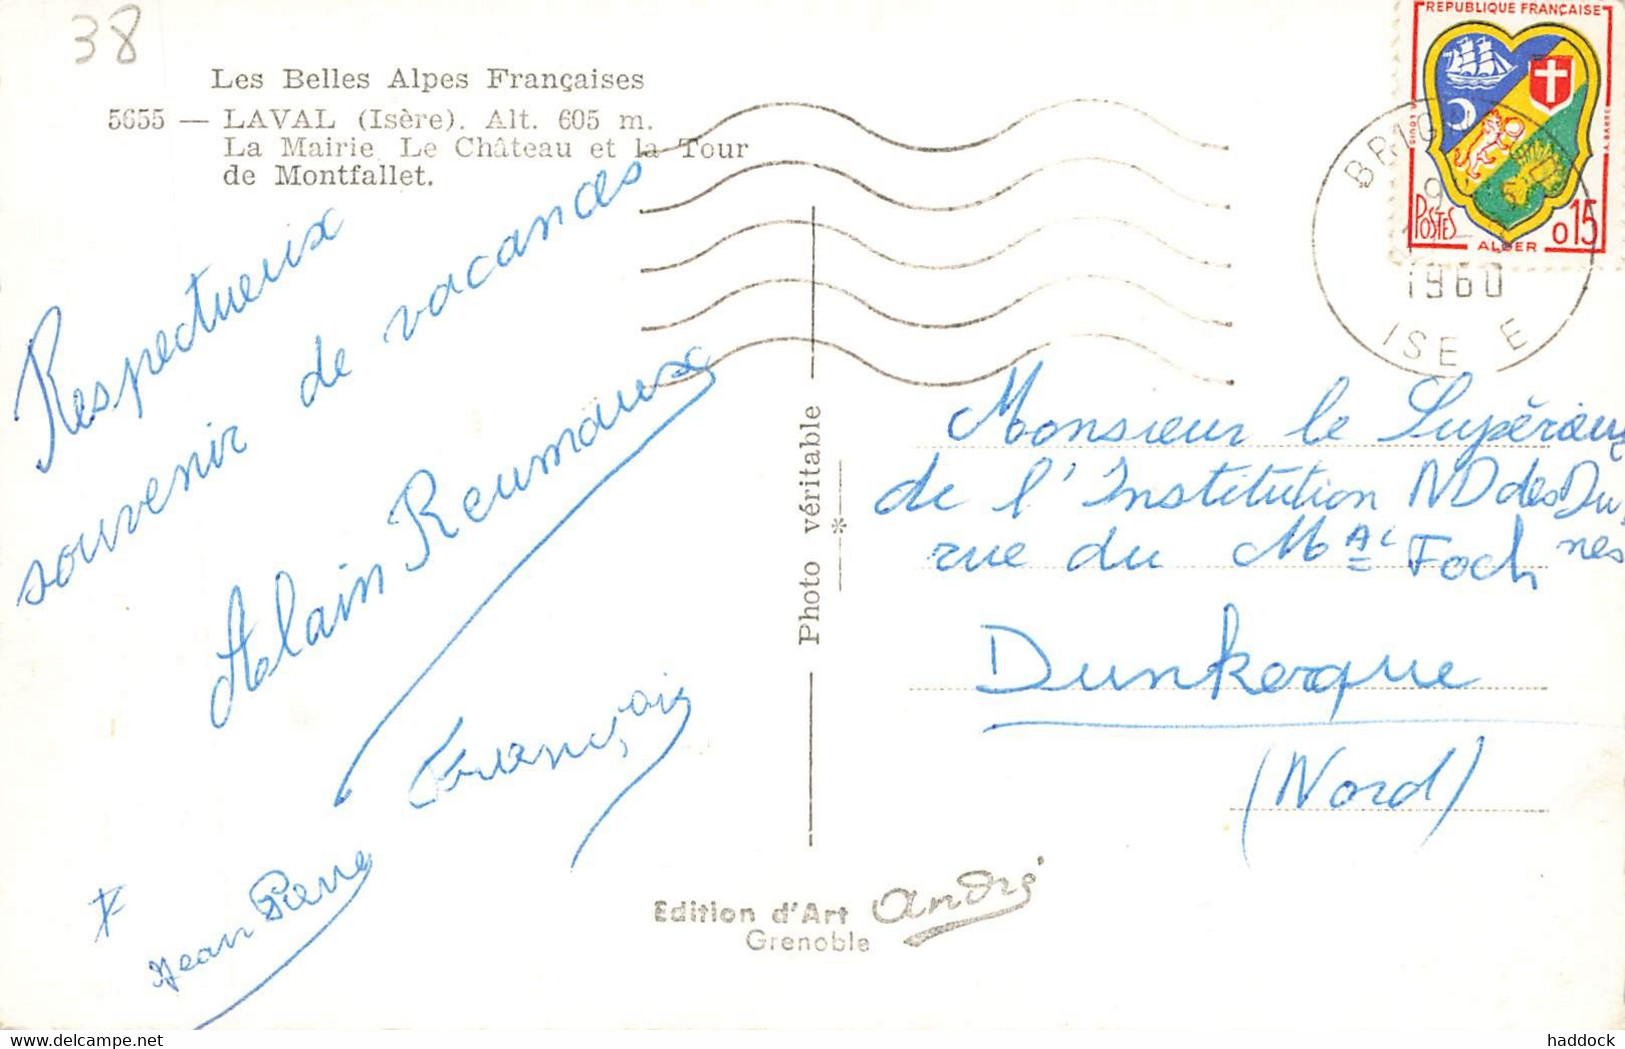 38
Les Belles Alpes Françaises
5655 — LAVAL (Isère). Alt. 605 m.
La Mairie Le Château et la Tour
de Montfallet.
Respectueux
souvenir de vacances
Alain Reumaux
François
Jean Pierre
Photo véritable
Edition d'Art André
Grenoble
REPUBLIQUE FRANÇAISE
POSTES
ALGER
0,15
1960
ISE E
Monsieur le Supérieur
de l'Institution ND des Du
nes
rue du Mal Foch
Dunkerque
(Nord)
Delcampe.net
haddock